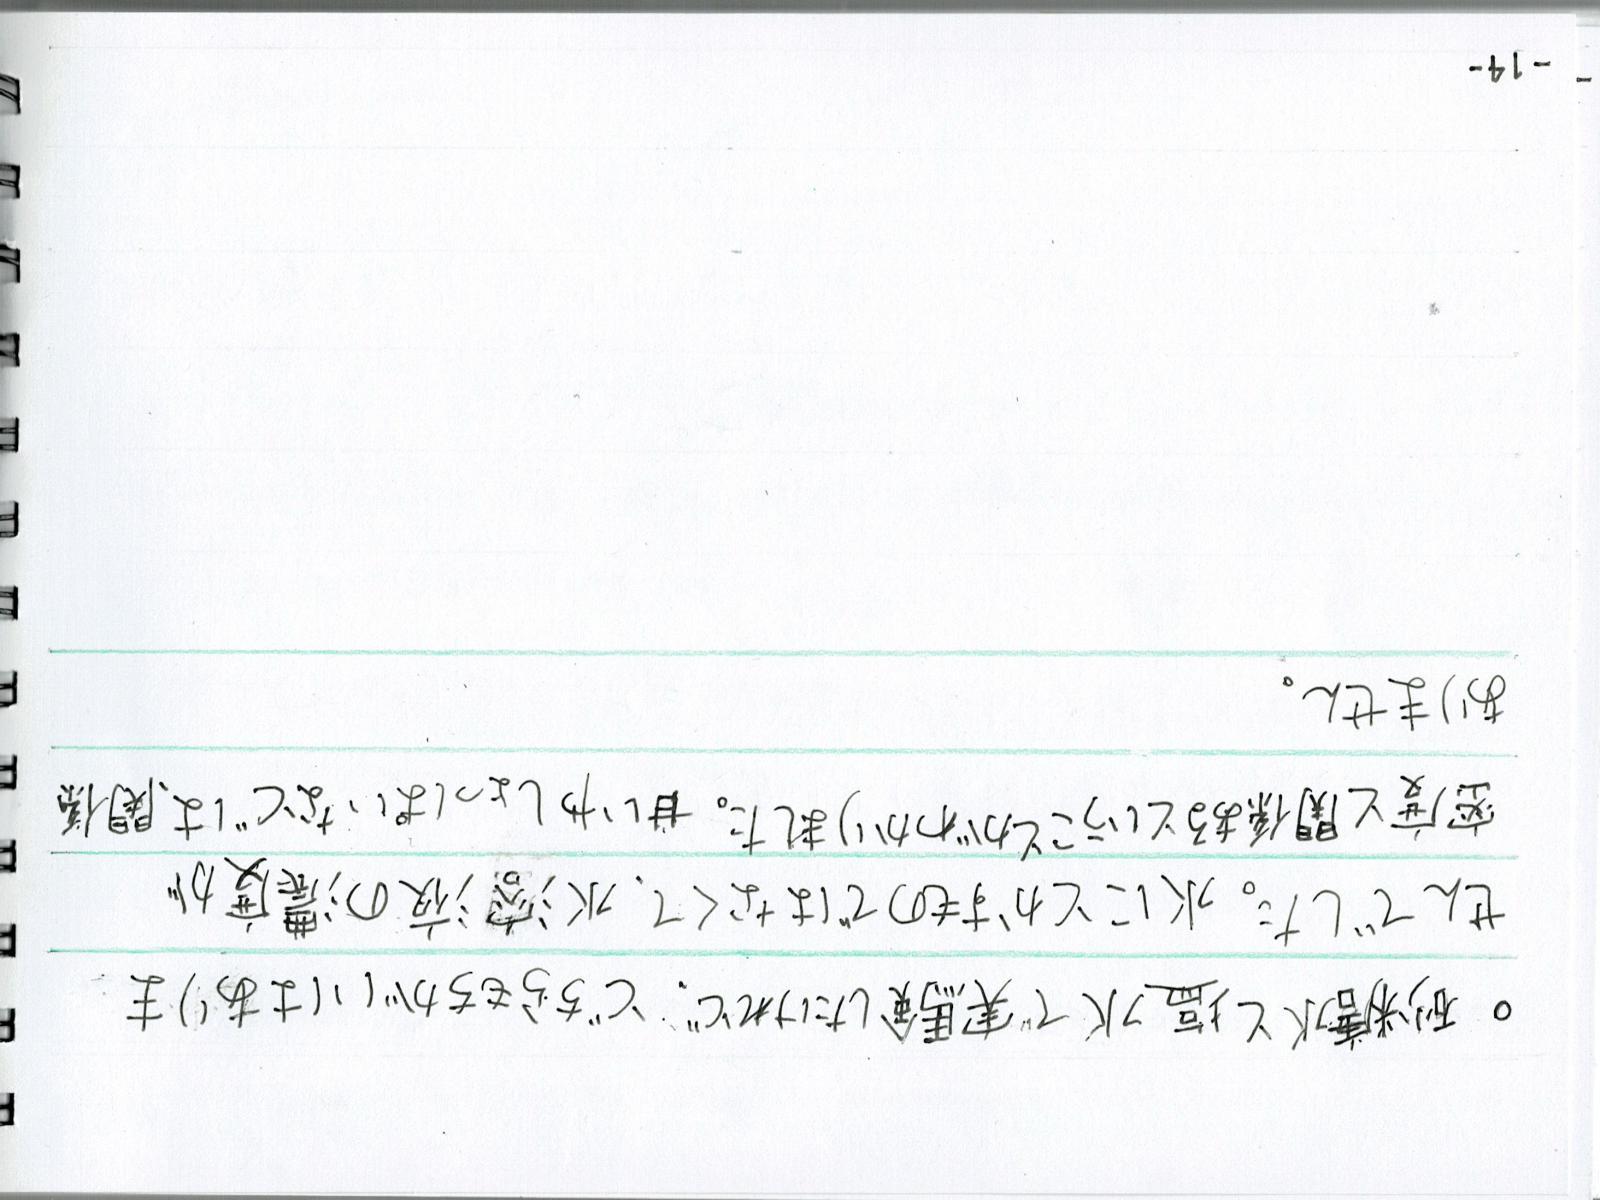 ○ 砂糖水と塩水で実験したけれど、どちらもちがいはありま
せんでした。水にとかすものではなくて、水溶液の濃度が
密度と関係あるということがわかりました。甘いやしょっぱいなどは、関係
ありません。
-14-